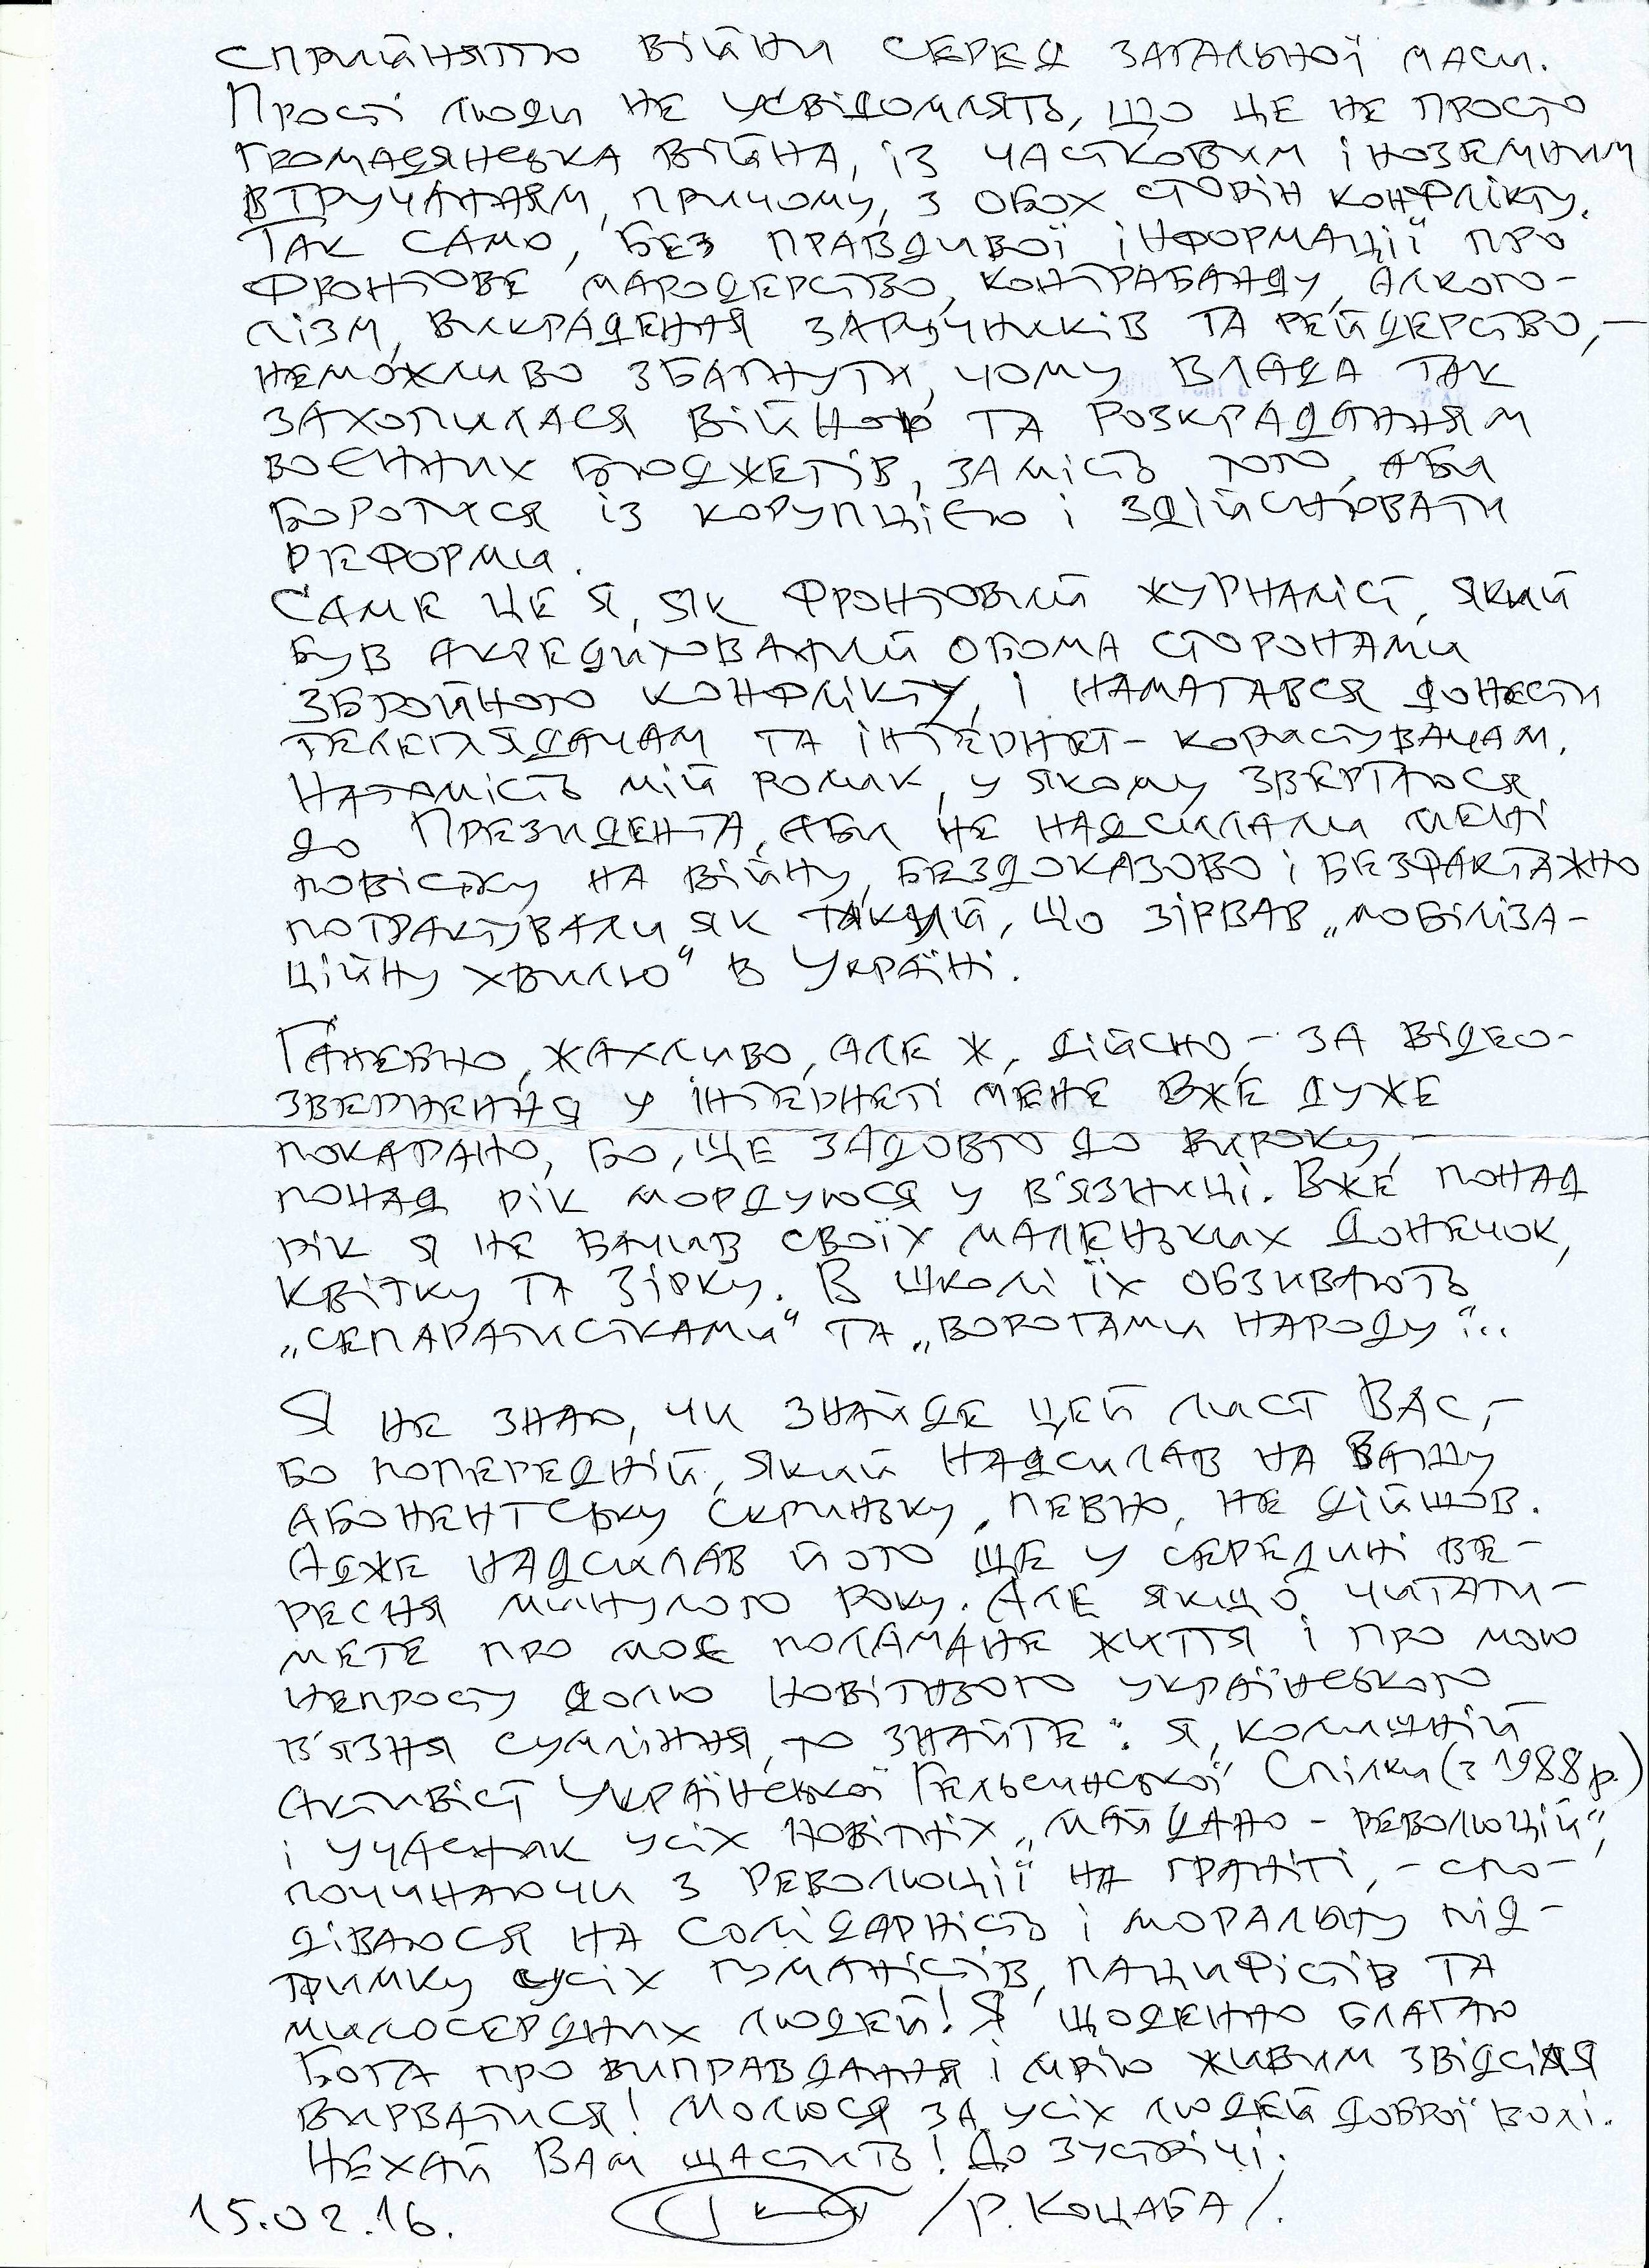 сприйняттю війни серед загальної маси.
Прості люди не усвідомлять, що це не просто
громадянська війна, із частковим іноземним
втручанням, причому, з обох сторін конфлікту.
Так само, без правдивої інформації про
фронтове мародерство, контрабанду, алкого-
лізм, викрадення заручників та рейдерство, –
неможливо збагнути, чому влада так
захопилася війною та розкраданням
воєнних бюджетів, замість того, аби
боротися із корупцією і здійснювати
реформи.
Саме це я, як фронтовий журналіст, який
був акредитований обома сторонами
збройного конфлікту, і намагався донести
телеглядачам та інтернет-користувачам.
Натомість мій ролик, у якому звертаюся
до Президента, аби не надсилали мені
повістку на війну, бездоказово і безфактажно
потрактували як такий, що зірвав „мобіліза-
ційну хвилю“ в Україні.
Ганебно, жахливо, але ж, дійсно – за відео-
звернення у інтернеті мене вже дуже
покарано, бо, ще задовго до вироку,
понад рік мордуюся у в'язниці. Вже понад
рік я не бачив своїх маленьких донечок,
Квітку та Зірку. В школі їх обзивають
„сепаратистками“ та „ворогами народу“...
Я не знаю, чи знайде цей лист Вас, –
бо попередній, який надсилав на Вашу
абонентську скриньку, певно, не дійшов.
Адже надсилав його ще у середині ве-
ресня минулого року. Але якщо читати-
мете про моє поламане життя і про мою
непросту долю новітнього українського
в'язня сумління, то знайте: я, колишній
активіст Української Гельсинської Спілки (з 1988 р.)
і учасник усіх новітніх „майдано-революцій“,
починаючи з Революції на граніті, – спо-
діваюся на солідарність і моральну під-
тримку усіх гуманістів, пацифістів та
милосердних людей! Я щоденно благаю
Бога про виправдання і мрію живим звідсіля
вирватися! Молюся за усіх людей доброї волі.
Нехай Вам щастить! До зустрічі.
15.02.16. /Р. Коцаба/.